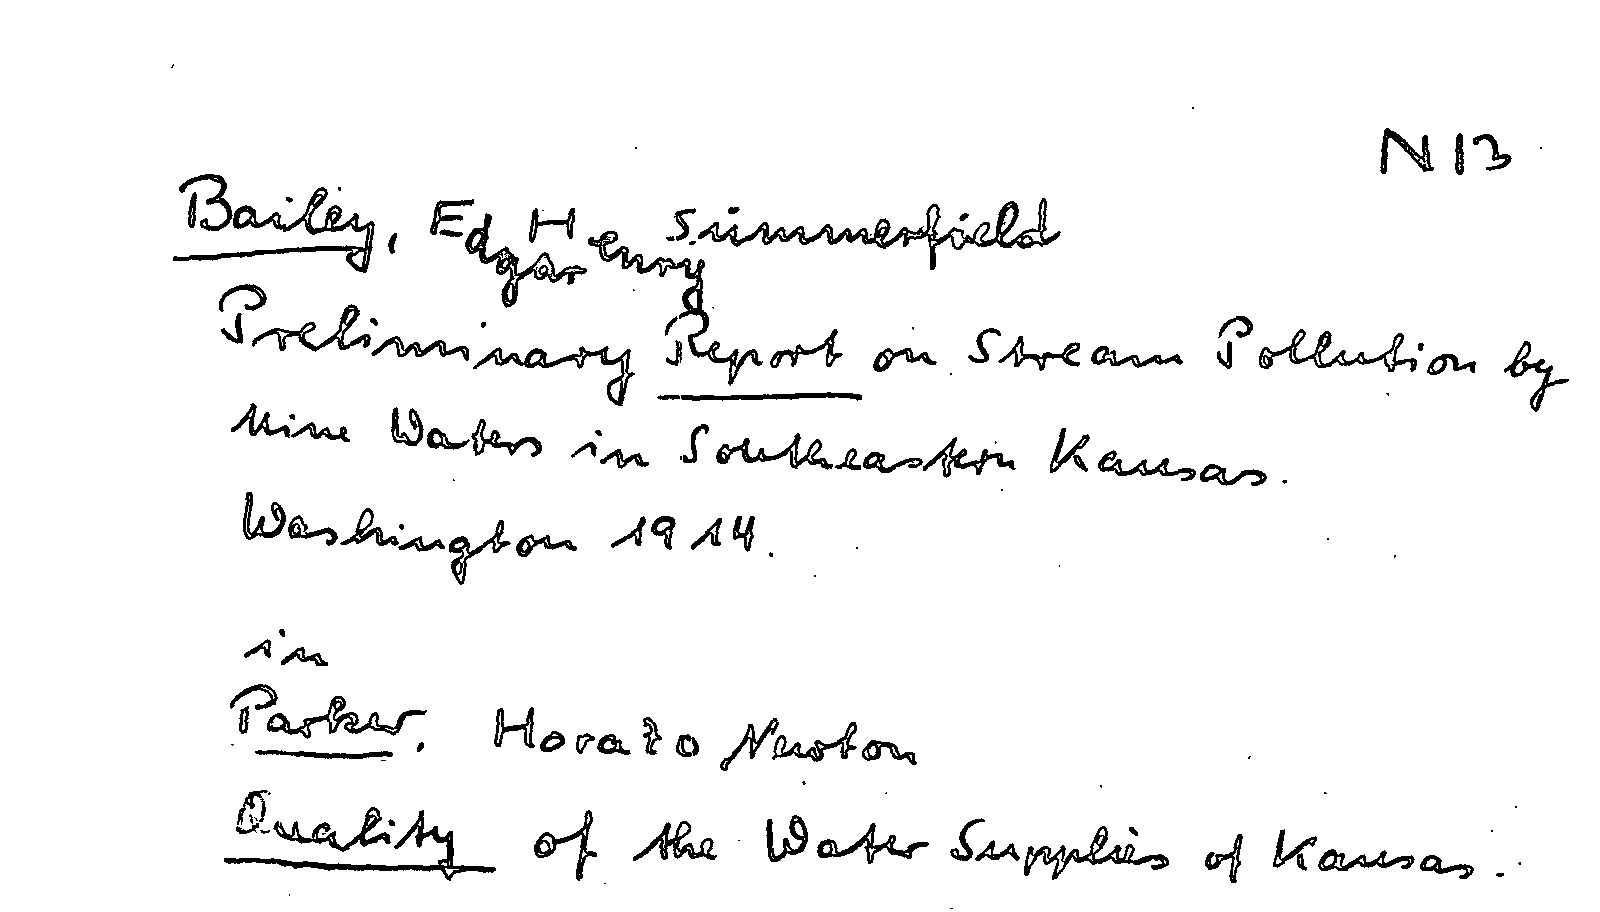 N13
Bailey, Edgar Henry Summerfield
Preliminary Report on Stream Pollution by
Mine Waters in Southeastern Kansas.
Washington 1914.
in
Parker, Horato Newton
Quality of the Water Supplies of Kansas.